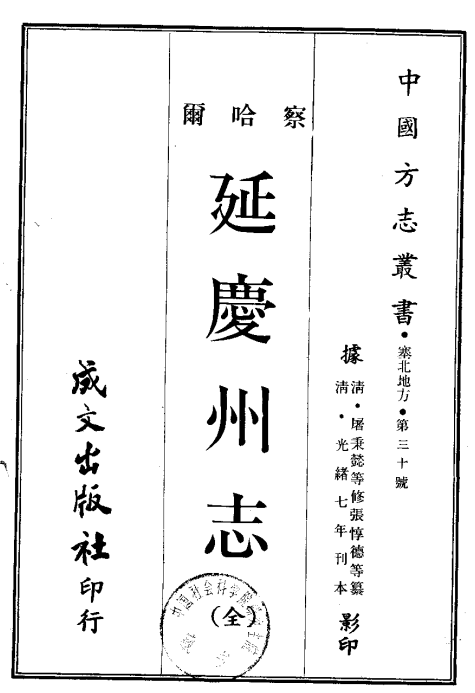 中國方志叢書・塞北地方・第三十號
據
清・屠秉懿等修張惇德等纂
清・光緒七年刊本
影印
察哈爾
延慶州志
(全)
成文出版社印行